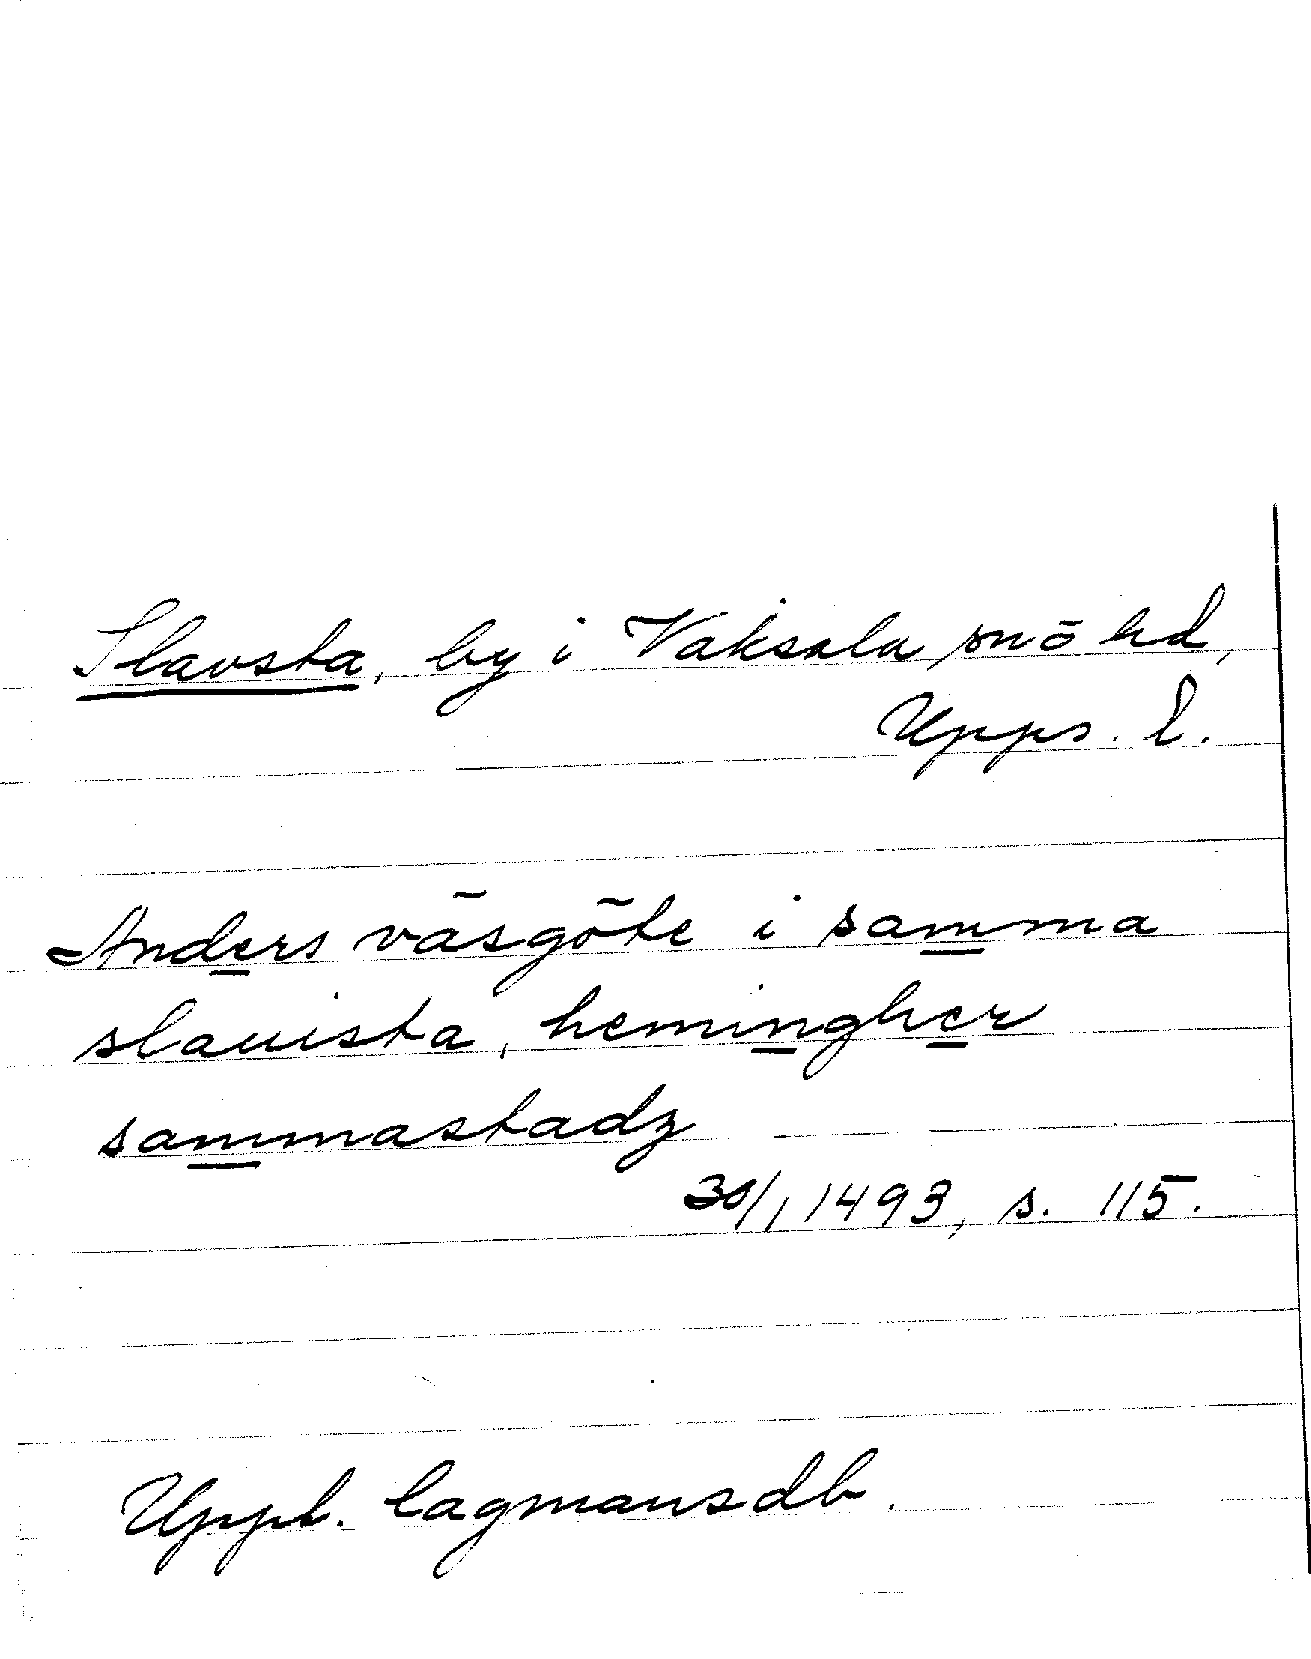 Slavsta, by i Vaksala sn o hd,
Upps. l.
Anders väsgöte i samma
slauista, hemingher
sammastadz
30/1 1493, s. 115.
Uppl. lagmansdb.